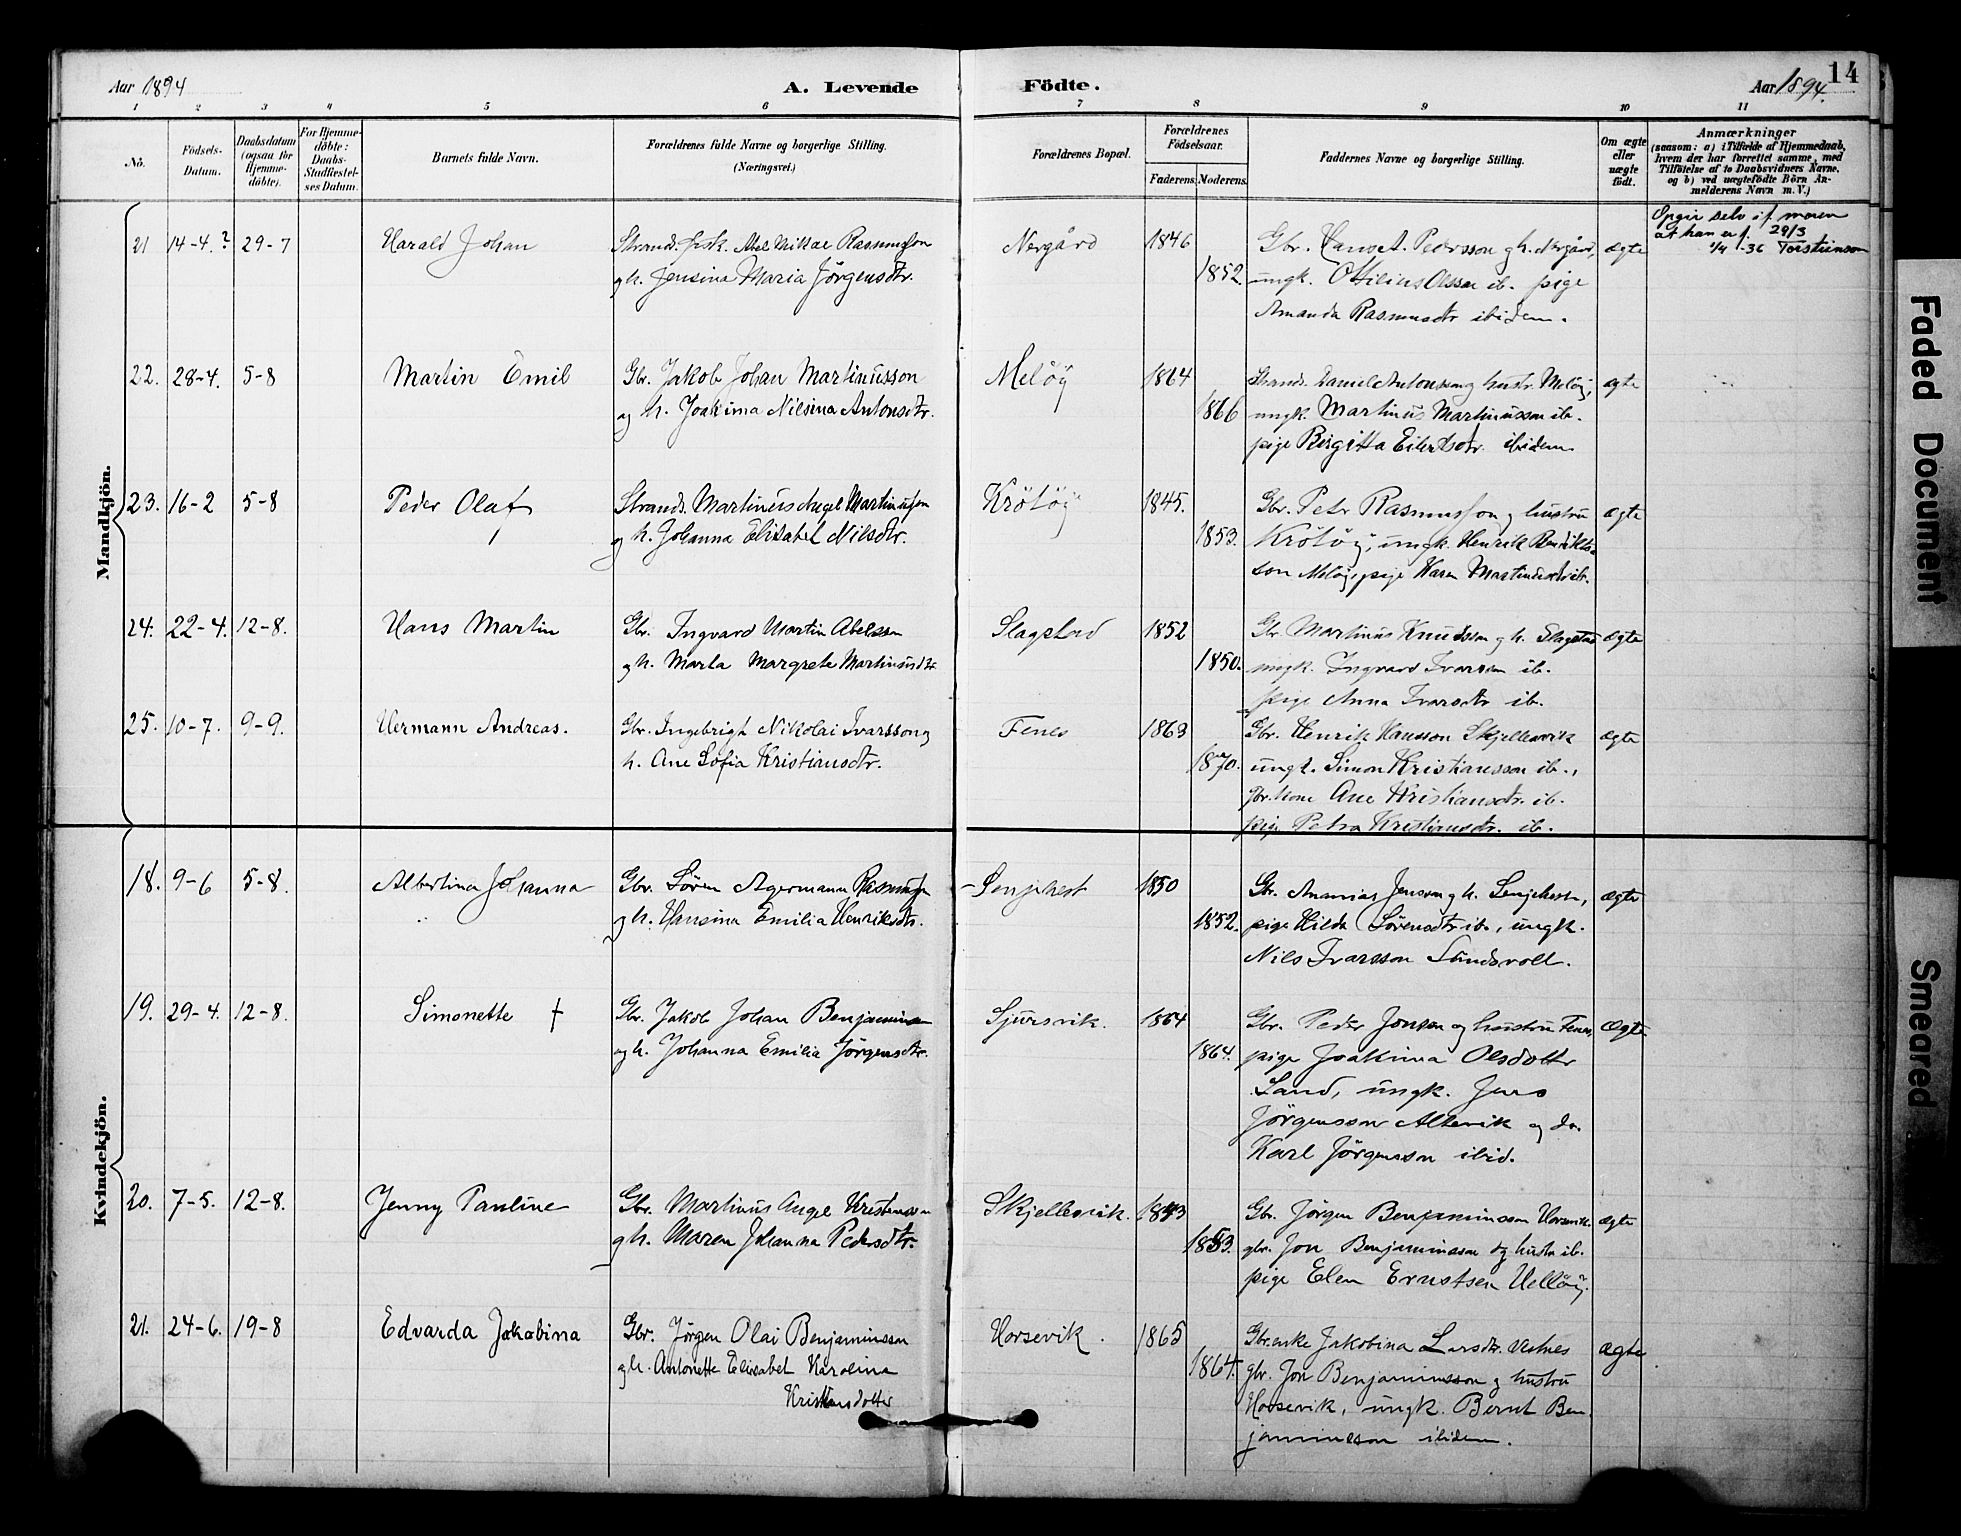 Aar 1894 A. Levende Födte. Aar 1894. 14
1 2 3 4 5 6 7 8 9 10 11
No. Födsels-Datum. Daabsdatum (ogsaa for Hjemme-döbte). For Hjemme-döbte: Daabs-Stadfæstel-ses Datum. Barnets fulde Navn. Forældrenes fulde Navne og borgerlige Stilling. (Næringsvei.) Forældrenes Bopæl. Forældrenes Födselsaar. Faderens. Moderens. Faddernes Navne og borgerlige Stilling. Om ægte eller uægte födt. Anmærkninger (saasom: a) i Tilfælde af Hjemmedaab, hvem der har forrettet samme, med Tilföielse af to Daabsvidners Navne, og b) ved uægtefödte Börn An-melderens Navn m. V.)
Mandkjön.
Opgir selv i f. moren
at han er f. 29/3
1/4 36 Torsteinson
21 14-4.? 29-7 Harald Johan Strands. fisk. Abel Mikal Rasmussøn Nergård 1846 Gbr. Hans A. Pedersson g h. Nergård, ægte
g h. Jensina Maria Jörgensdtr. 1852. ungk. Ottilius Olsson ib. pige
Amanda Rasmusdtr ibidem.
22. 28-4. 5-8 Martin Emil Gbr. Jakob Johan Martinusson Melöy 1864 Strands. Daniel Antonsson g hustr. Melöy, ægte
og h. Joakima Nilsina Antonsdtr. 1866 ungk. Martinus Martinusson ib.
pige Birgitta Eilertsdtr. ibidem
23. 16-2 5-8 Peder Olaf Strands. Martinus Angel Martinussøn Krötöy 1845. Gbr. Petr Rasmussøn g hustru ægte
g h. Johanna Elisabet Nilsdtr. 1853. Krötöy, ungk. Henrik Benedikts-
son Melöy, pige Karen Martinusdtr ib.
24. 22-4. 12-8. Hans Martin Gbr. Ingvard Martin Abelsson Slagstad 1852 Gbr Martinus Knudsson g h. Slagstad ægte
g h. Marta Margrete Martinusdtr 1850. ungk. Ingvard Ivarsson ib.
pige Anna Ivarsdtr ib.
25. 10-7. 9-9. Hermann Andreas. Gbr. Ingebrigt Nikolai Ivarsson g Fenes 1863 Gbr. Henrik Hansson Skjellesvik ægte
h. Ane Sofia Kristiansdtr. 1870. ungk. Simon Kristiansson ib.,
gbr. kone Ane Kristiansdtr. ib.
pige Petra Kristiansdtr. ib.
Kvindekjön.
18. 9-6 5-8. Albertina Johanna Gbr. Sören Agermann Rasmussøn Senjehest 1850 Gbr. Ananias Jensson g h. Senjehest, ægte
g h. Hansina Emilia Henriksdtr. 1852. pige Hilda Sörensdtr ib., ungk.
Nils Ivarsson Sandsvoll.
19. 29-4. 12-8. Simonette † Gbr. Jakob Johan Benjaminson Sjursvik. 1864 Gbr. Peder Jonson og hustru Fenes, Ægte
og h. Johanna Emilia Jörgensdtr. 1864. pige Joakima Olsdotter
Sand, ungk. Jens
Jörgensson Altevik og do.
Karl Jörgensson ibid.
20. 7-5. 12-8. Jenny Pauline Gbr. Martinus Angel Kristensson Skjellesvik. 1843 Gbr. Jörgen Benjaminsson Horsevik. ægte
g h. Maren Johanna Pedersdtr. 1853. gbr. Jon Benjaminsson og hustr ib.
pige Elen Ernstsen
21. 24-6. 19-8 Edvarda Jakobina Gbr. Jörgen Olai Benjaminsson Horsevik. 1865 Gbr.enke Jakobina Larsdtr. Vestnes ægte
g h. Antonette Elisabet Karolina 1864. gbr. Jon Benjaminsson g hustru
Kristiansdotter Horsevik, ungk. Bernt Ben-
jaminsson ibidem.
Faded Document
Smeared